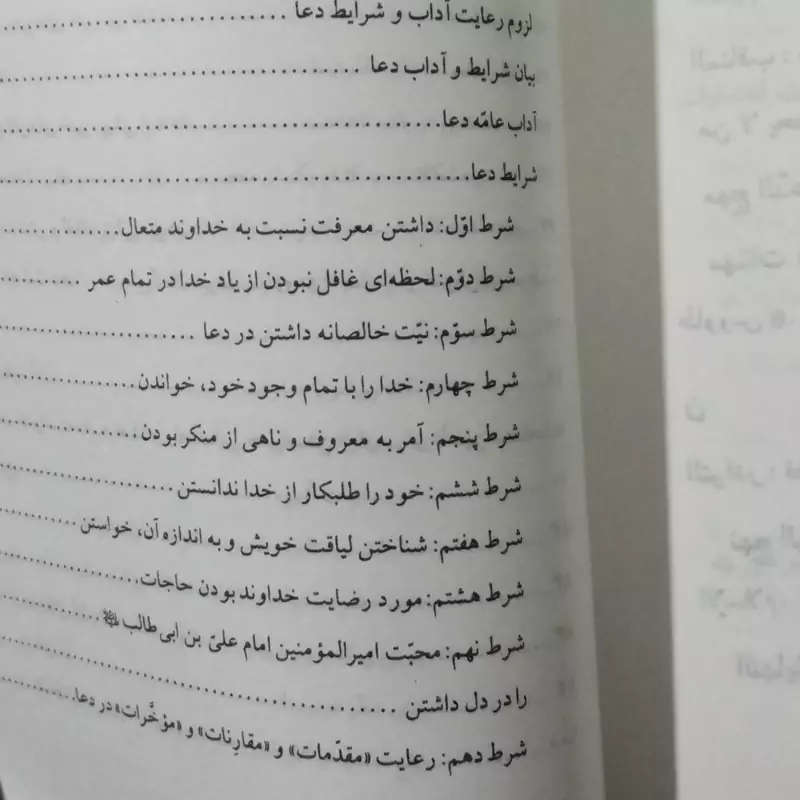 لزوم رعایت آداب و شرایط دعا
بیان شرایط و آداب دعا
آداب عامّه دعا
شرایط دعا
شرط اوّل: داشتن معرفت نسبت به خداوند متعال
شرط دوّم: لحظه‌ای غافل نبودن از یاد خدا در تمام عمر
شرط سوّم: نیّت خالصانه داشتن در دعا
شرط چهارم: خدا را با تمام وجود خود، خواندن
شرط پنجم: آمر به معروف و ناهی از منکر بودن
شرط ششم: خود را طلبکار از خدا ندانستن
شرط هفتم: شناختن لیاقت خویش و به اندازه آن، خواستن
شرط هشتم: مورد رضایت خداوند بودن حاجات
شرط نهم: محبّت امیرالمؤمنین امام علیّ بن ابی‌طالب
را در دل داشتن
شرط دهم: رعایت «مقدّمات» و «مقارِنات» و «مؤخَّرات» در دعا